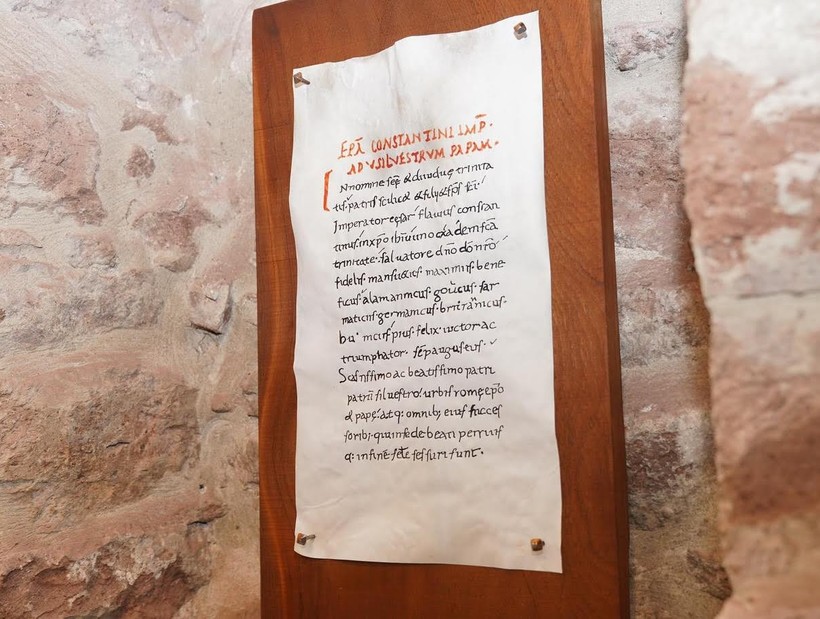 EP̄A CONSTANTINI IMP̄·
AD VSILVESTRVM PAPAM·
IN nomine scę & diuiduę trinita
tis·patris scilic& & filii & sp̄s sci·
Imperator cęsar flauius constan
tinus in xp̄o ihū uno ex eadem scā
trinitate· saluatore dn̄o dō nrō
fidelis mansu&us maximus bene
ficus· alamannicus· goticus· sar
maticus germanicus· britannicus·
hunnicus pius· felix· uictor ac
triumphator· semp augustus·
Scātissimo ac beatissimo patri
patrū siluestro· urbis romę ep̄o
& papę· atq: omnib; eius succes
sorib; qui in sede beati petri us
q: in finē scli sessuri sunt·